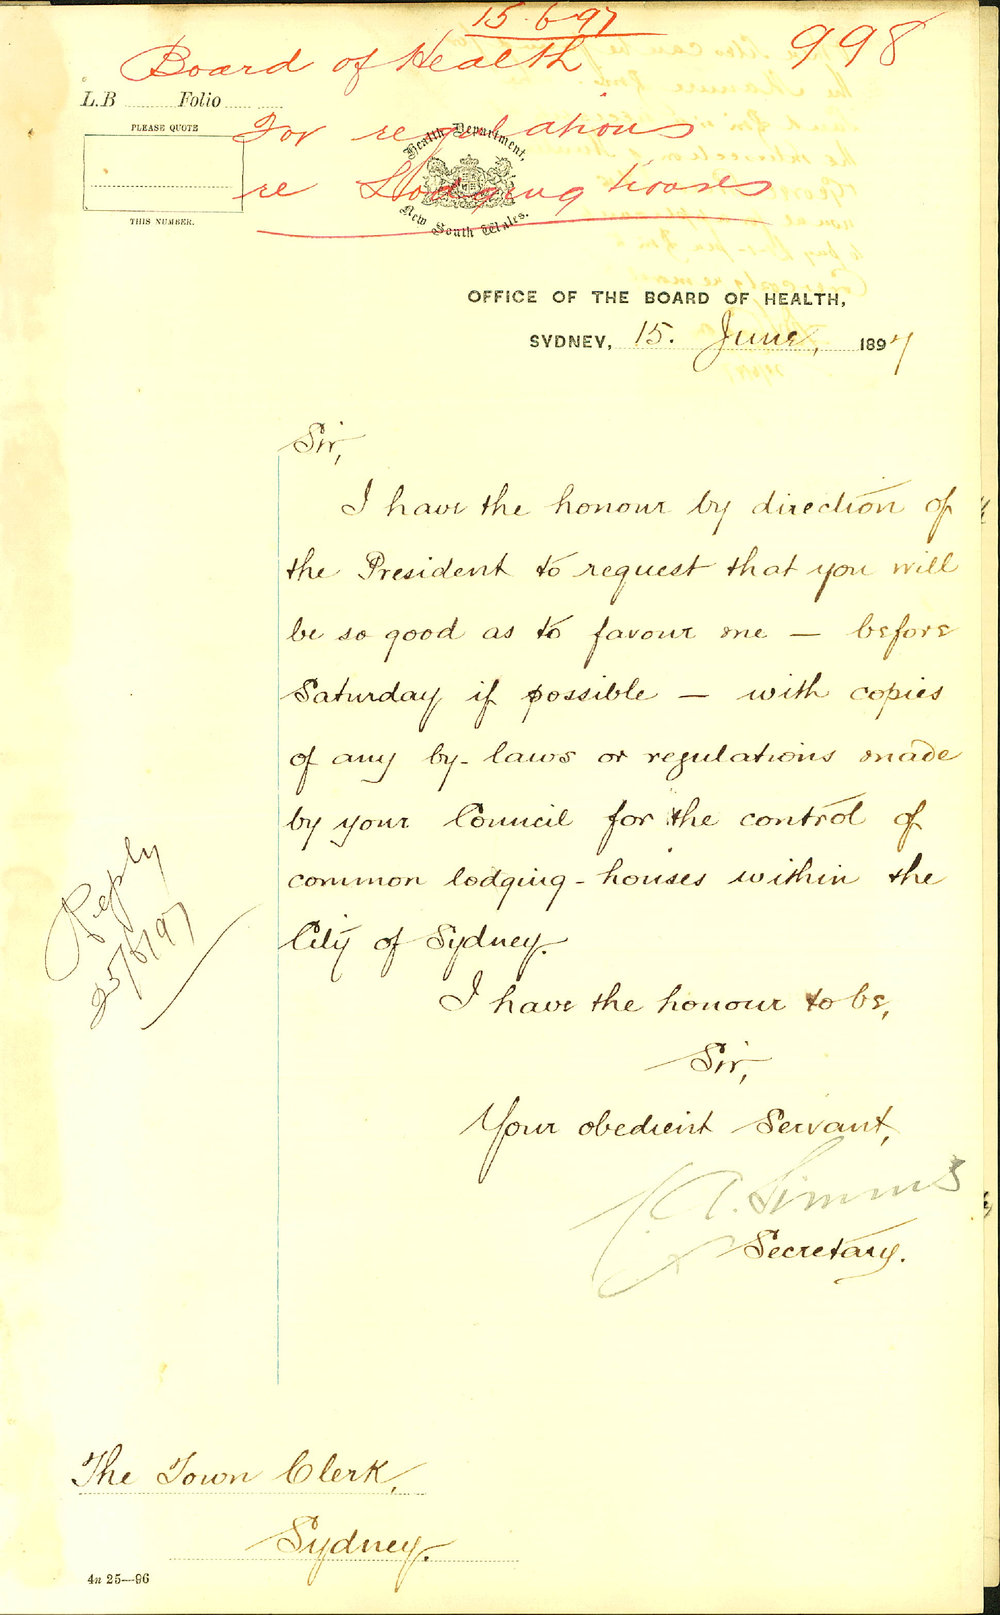 15.6.97
998
Board of Health
L.B ........ Folio ........
PLEASE QUOTE
THIS NUMBER.
For regulations
re Lodging houses
Health Department,
New South Wales.
OFFICE OF THE BOARD OF HEALTH,
SYDNEY, 15. June, 1897
Sir,
I have the honour by direction of
the President to request that you will
be so good as to favour me — before
Saturday if possible — with copies
of any by-laws or regulations made
by your Council for the control of
common lodging-houses within the
City of Sydney.
I have the honour to be,
Sir,
Your obedient Servant,
Simms
Secretary.
Reply
25/6/97
The Town Clerk,
Sydney.
4n 25—96